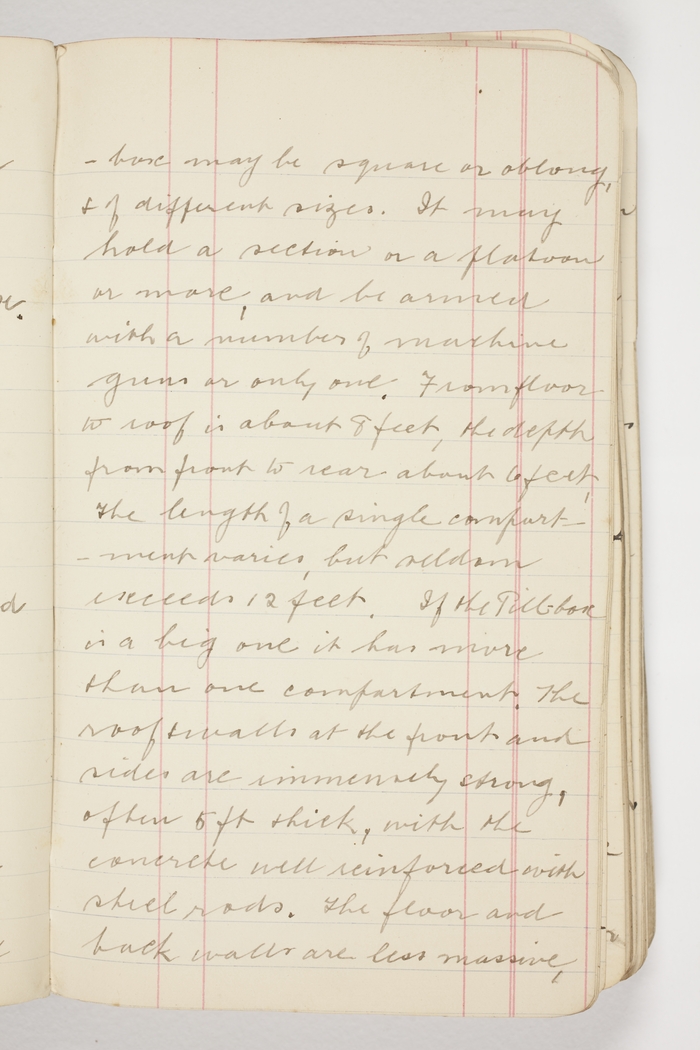 - box may be square or oblong,
& of different sizes. It may
hold a section or a platoon
or more, and be armed
with a number of machine
guns or only one. From floor
to roof is about 8 feet, the depth
from front to rear about 6 feet,
The length of a single compart-
- ment varies, but seldom
exceeds 12 feet. If the Pill-box
is a big one it has more
than one compartment. The
roof & walls at the front and
sides are immensely strong,
often 5 ft thick, with the
concrete well reinforced with
steel rods. The floor and
back walls are less massive,